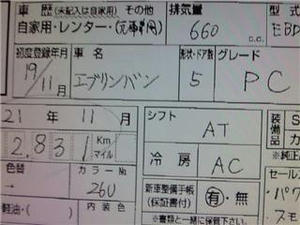 車 歴 (未記入は自家用) その他 排気量 型式
自家用・レンター・ 660 c.c. EBD
初度登録年月 車名 形状・ドア数 グレード
19/11月 エブリンバン 5 PC
21年 11月 シフト AT 装備品
2,831 Km マイル 冷房 AC
色替 カラーNo. 新車整備手帳 (保証書付) 有・無 セールス
→ 26U パワ
軽油・( ) 内装色 ※書類と一緒に保管して下さい。 スモ